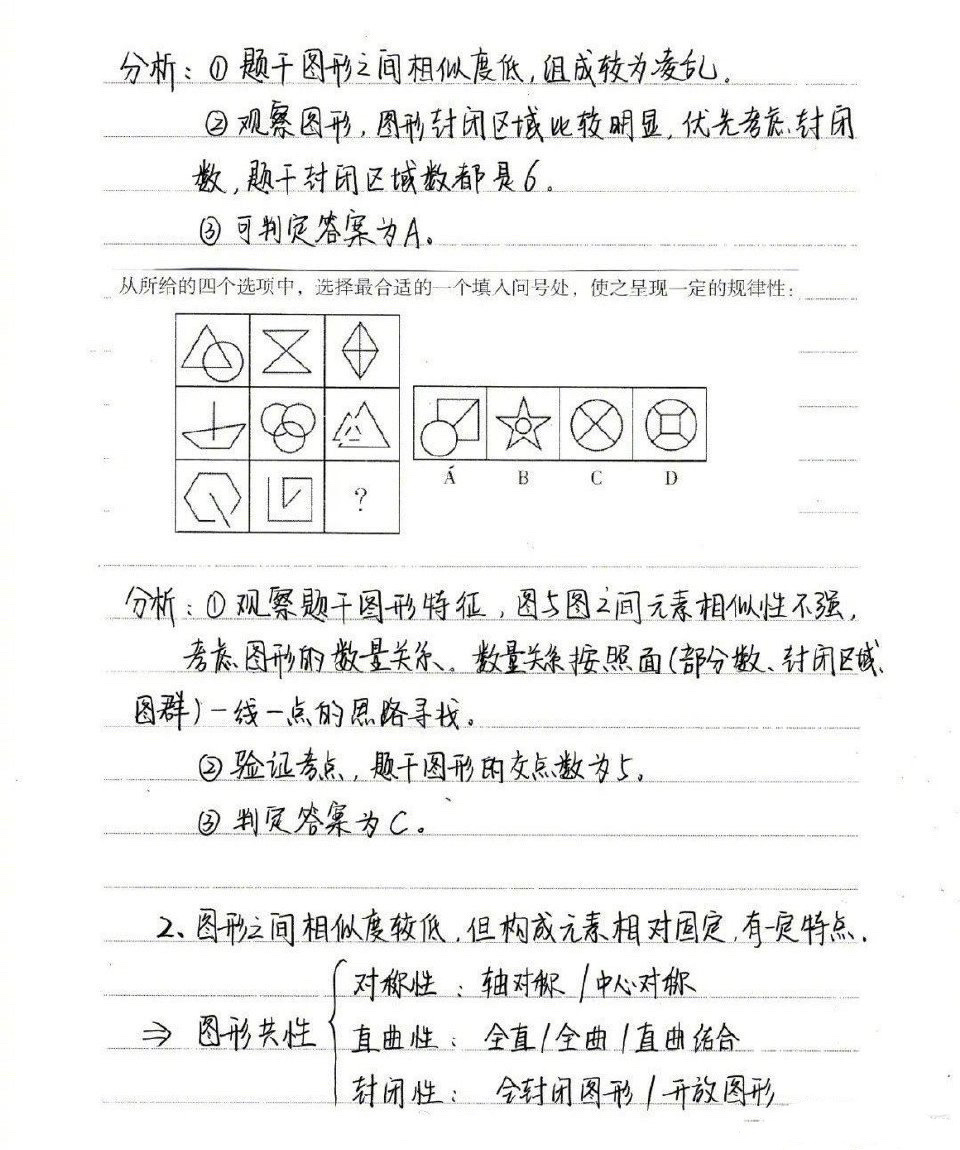 分析：① 题干图形之间相似度低，组成较为凌乱。
② 观察图形，图形封闭区域比较明显，优先考虑封闭
数，题干封闭区域数都是6。
③ 可判定答案为A。
从所给的四个选项中，选择最合适的一个填入问号处，使之呈现一定的规律性：
?
A B C D
分析：① 观察题干图形特征，图与图之间元素相似性不强，
考虑图形的数量关系。数量关系按照面(部分数、封闭区域、
图群)一线一点的思路寻找。
② 验证考点，题干图形的交点数为5。
③ 判定答案为C。
2、图形之间相似度较低，但构成元素相对固定，有一定特点．
对称性：轴对称/中心对称
⇒ 图形共性 直曲性：全直/全曲/直曲结合
封闭性：全封闭图形/开放图形